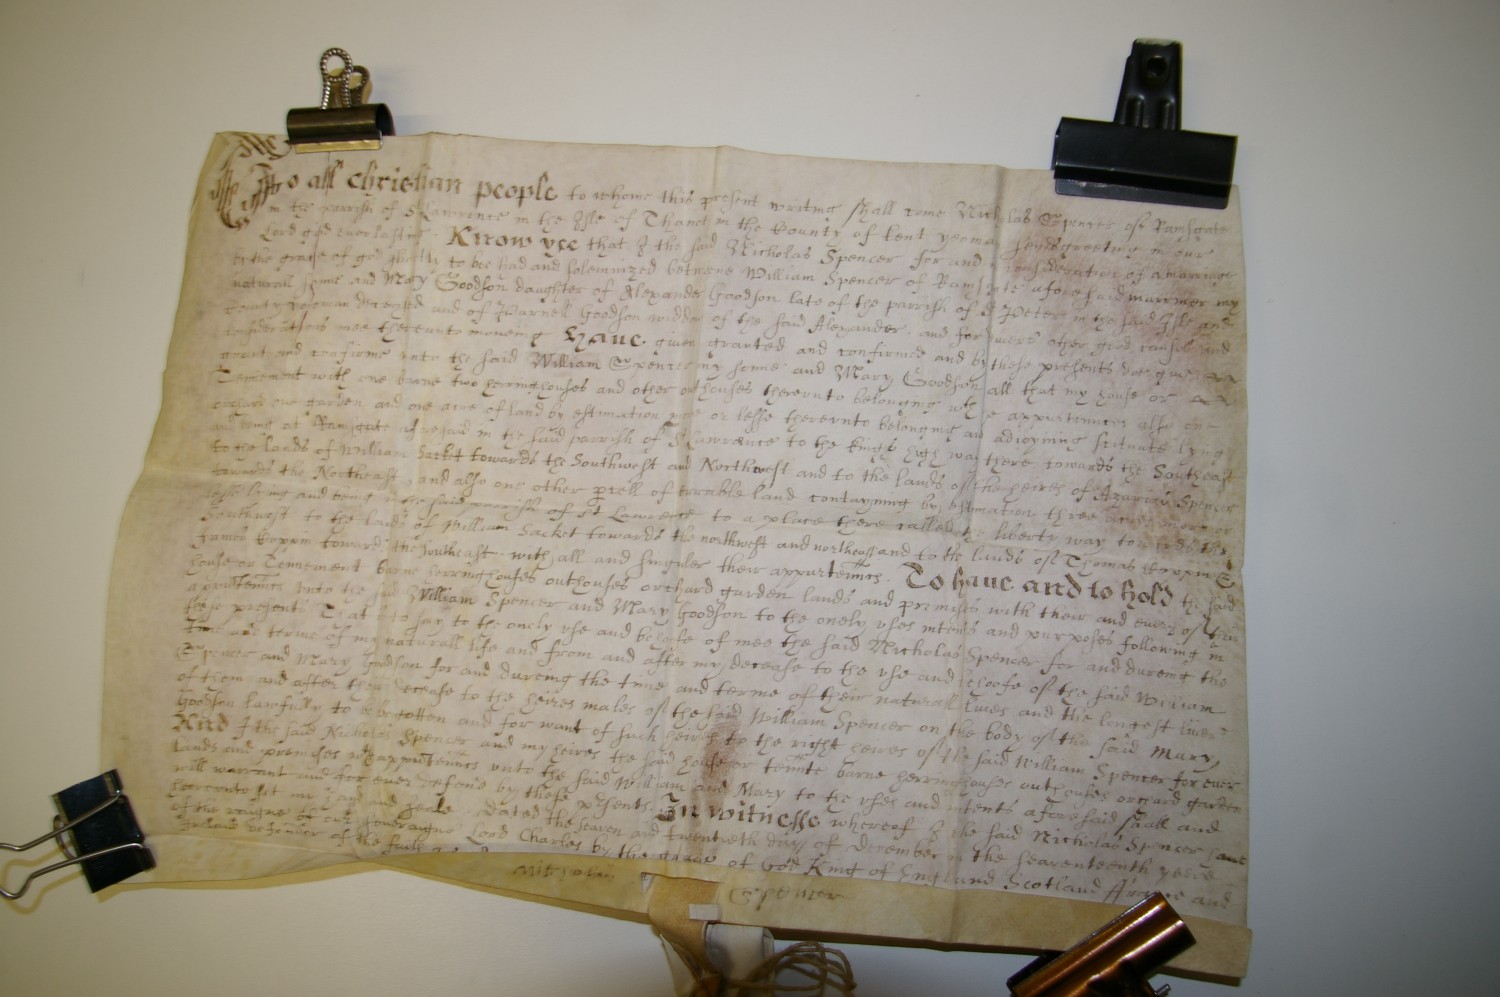 To all christian people to whome this present writing shall come Nicholas Spencer of Ramsgate
in the parrish of St Lawrence in the Isle of Thanet in the County of Kent yeoman sends greeting in our
Lord god everlasting. Know yee that I the said Nicholas Spencer for and in consideration of a marriage
by the grace of god shortly to bee had and solemnized betwene William Spencer of Ramsgate aforesaid marriner my
naturall sonne and Mary Goodson daughter of Alexander Goodson late of the parrish of St Peters in the said Isle and
County yeoman deceased and of Parnell Goodson widdow of the said Alexander. and for divers other good causes and
considerations mee thereunto moveing Have given granted and confirmed and by these presents doe give
grant and confirme unto the said William Spencer my sonne and Mary Goodson all that my house or
Tennement with one barne two herringhouses and other outhouses thereunto belonging with appurtennces also one
orchard one garden and one acre of land by estimation more or lesse thereunto belonging and adioyning scituate lying
and being at Ramsgate aforesaid in the said parrish of St Lawrence to the Kings high way there towards the Southeast
to the lands of William Sacket towards the Southwest and Northwest and to the lands of the heires of Azarias Spencer
towards the Northeast, and also one other prell of errable land contayning by estimation three acres more or
lesse lying and being in the said parrish of St Lawrence to a place there called the liberty way towards the
Southwest to the lands of William Sacket towards the northwest and northeast and to the lands of Thomas &
James towards the southeast. with all and singuler their appurtennces. To have and to hold the said
house or Tennement barne herringhouses outhouses orchard garden lands and premises with their and every of their
appurtennces unto the said William Spencer and Mary Goodson to the onely uses intents and purposes following in
these presents That is to say to the onely use and behoofe of mee the said Nicholas Spencer for and dureing the
time and terme of my naturall life and from and after my decease to the use and behoofe of the said William
Spencer and Mary Goodson for and dureing the time and terme of their naturall lives and the longest liver
of them and after their decease to the heires males of the said William Spencer on the body of the said Mary
Goodson lawfully to be begotten and for want of such heires to the right heires of the said William Spencer for ever
And I the said Nicholas Spencer and my heires the said house or tennte barne herringhouses outhouses orchard garden
lands and premises with appurtennces unto the said William and Mary to the uses and intents aforesaid shall and
will warrant and for ever defend by these presents. In witnesse whereof I the said Nicholas Spencer have
hereunto set my hand and seale. dated the seaven and twentieth day of December in the seaventeenth yeare
of the raigne of our soveraigne Lord Charles by the grace of God King of England Scotland ffrance and
Ireland defender of the faith
Nicholas Spencer